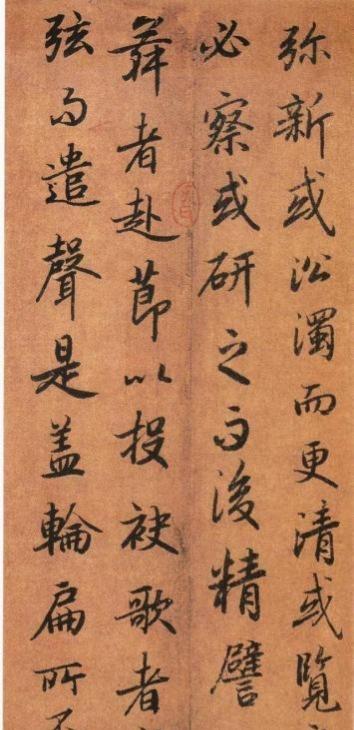 弥新或沿濁而更清或覽
必察或研之而後精譬
舞者赴莭以投袂歌者
弦而遣聲是盖輪扁所